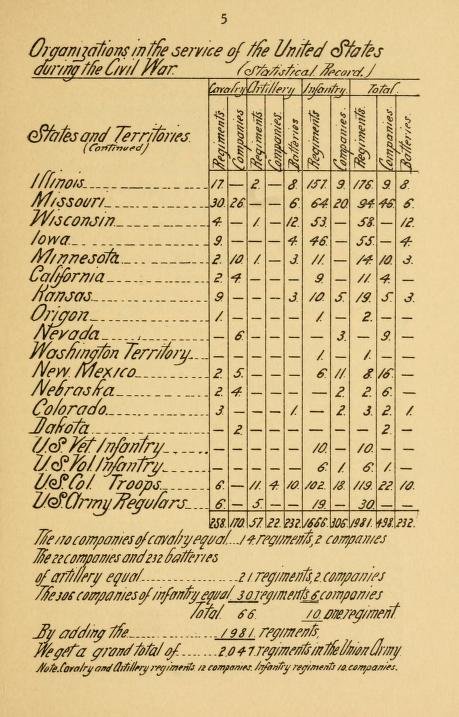 5
Organizations in the service of the United States
during the Civil War. (Statistical Record.)
Cavalry Artillery Infantry. Total.
States and Territories. Regiments. Companies. Regiments. Companies. Batteries. Regiments. Companies. Regiments. Companies. Batteries.
(Continued)
Illinois 17. — 2. — 8. 157. 9. 176. 9. 8.
Missouri 30. 26 — — 6. 64. 20. 94. 46. 6.
Wisconsin 4. — 1. — 12. 53. — 58. — 12.
Iowa 9. — — — 4. 46. — 55. — 4.
Minnesota 2. 10. 1. — 3. 11. — 14. 10. 3.
California 2. 4. — — — 9. — 11. 4. —
Kansas 9 — — — 3. 10. 5. 19. 5. 3.
Origon 1. — — — — 1. — 2. — —
Nevada — 6. — — — — 3. — 9. —
Washington Territory — — — — — 1. — 1. — —
New Mexico 2. 5. — — — 6. 11. 8. 16. —
Nebraska 2. 4. — — — — 2. 2. 6. —
Colorado 3. — — — 1. — 2. 3. 2. 1.
Dakota — 2. — — — — — — 2. —
U.S. Vet. Infantry — — — — — 10. — 10. — —
U.S. Vol. Infantry — — — — — 6. 1. 6. 1. —
U.S. Col. Troops 6. — 11. 4. 10. 102. 18. 119. 22. 10
U.S. Army Regulars 6. — 5. — — 19. — 30. — —
258. 170. 57. 22. 232. 1666. 306. 1981. 498. 232.
The 170 companies of cavalry equal 14 regiments, 2 companies
The 22 companies and 232 batteries
of artillery equal 21 regiments, 2 companies
The 306 companies of infantry equal 30 regiments 6 companies
Total. 66. 10. one regiment.
By adding the 1981. regiments,
We get a grand total of 2047 regiments in the Union Army.
Note. Cavalry and Artillery regiments 12 companies. Infantry regiments 10. companies.